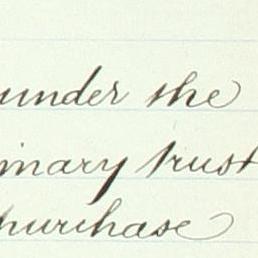 under the
mary trust
purchase